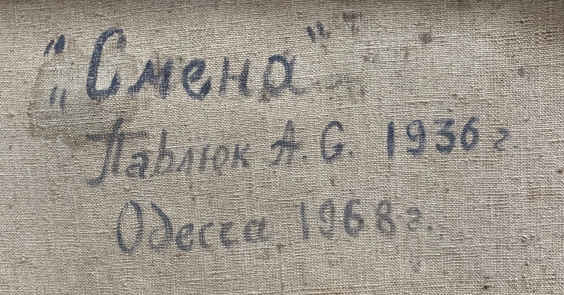 "Смена"
Павлюк А. С. 1936 г
Одесса 1968 г.